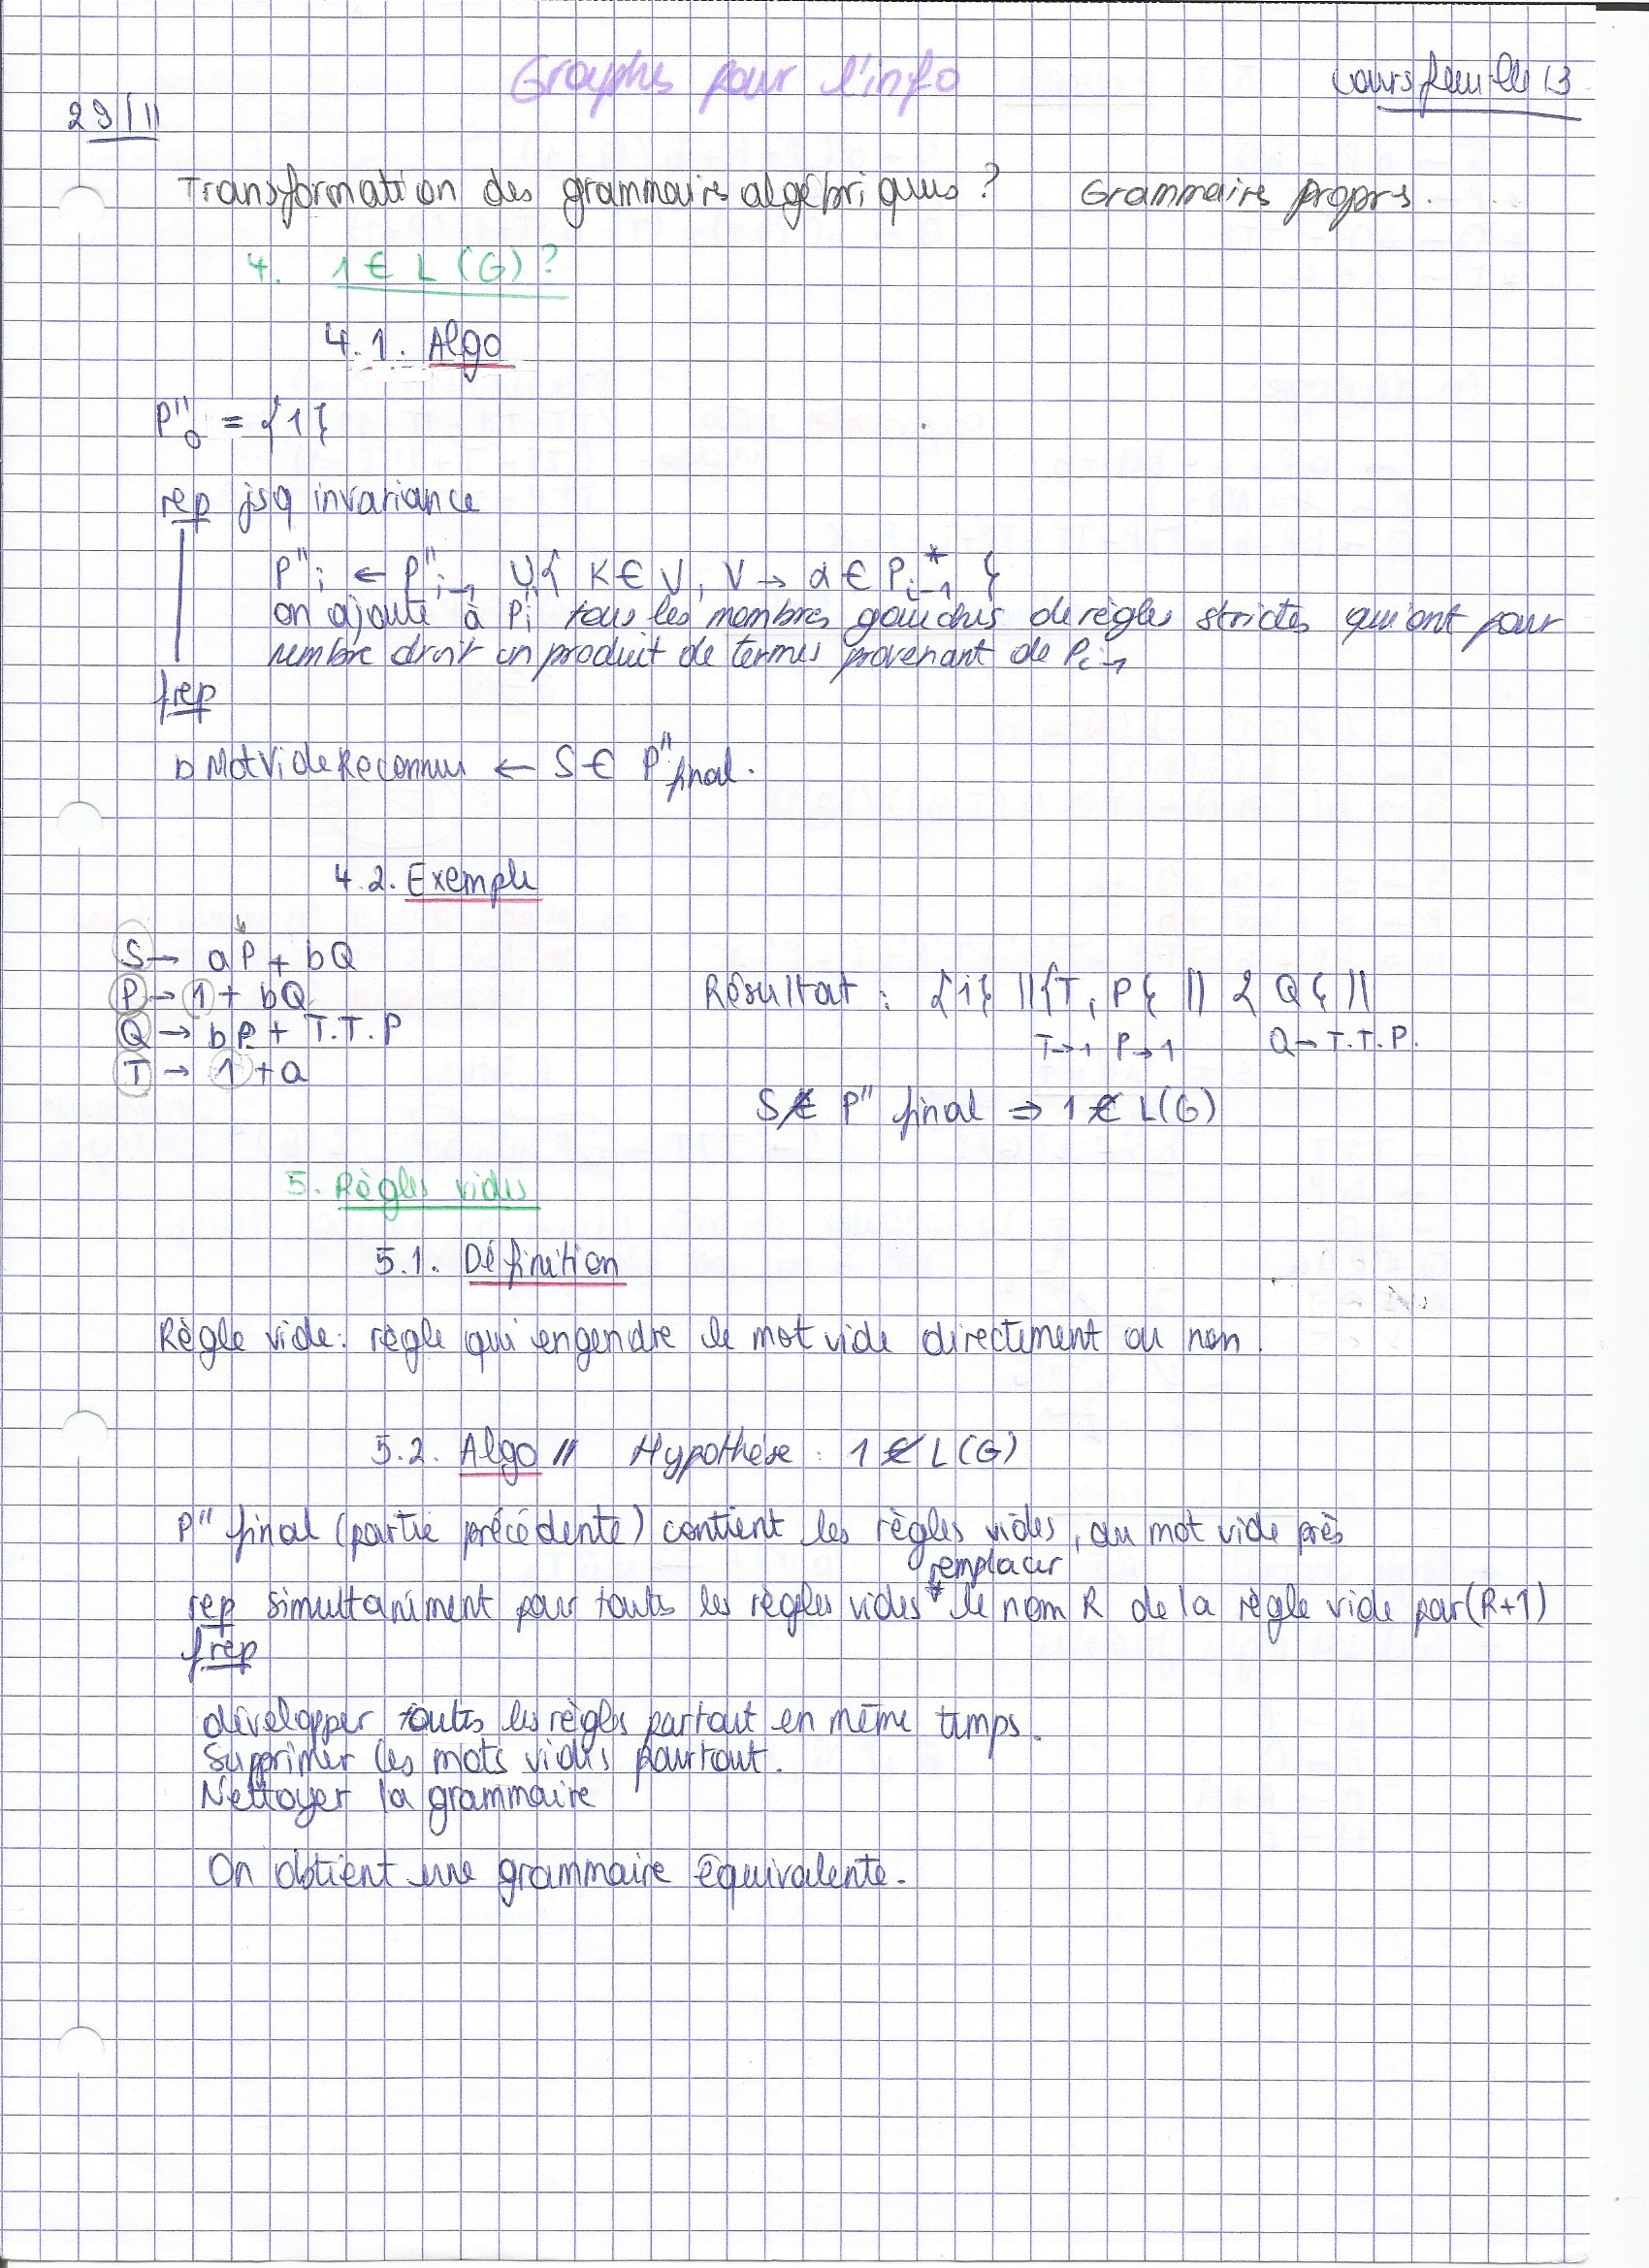 Graphes pour l'info
Cours feuille 13
29/11
Transformation des grammaires algébriques ? Grammaires propres.
4. 1 ∈ L(G) ?
4.1. Algo
P''₀ = {1}
rep jsq invariance
P''ᵢ ← P''ᵢ₋₁ ∪ { K ∈ V, V → α ∈ Pᵢ₋₁* }
on ajoute à Pᵢ tous les membres gauches de règles strictes qui ont pour
membre droit un produit de termes provenant de Pᵢ₋₁
frep
b MotVideReconnu ← S ∈ P'' final.
4.2. Exemple
S → aP + bQ
P → 1 + bQ
Q → bP + T.T.P
T → 1 + a
Résultat : {1} || {T, P} || {Q} ||
T→1 P→1 Q→T.T.P.
S ∉ P'' final ⇒ 1 ∉ L(G)
5. Règles vides
5.1. Définition
Règle vide : règle qui engendre le mot vide directement ou non.
5.2. Algo // Hypothèse : 1 ∉ L(G)
P'' final (partie précédente) contient les règles vides, au mot vide près
remplacer
rep simultanément pour toutes les règles vides le nom R de la règle vide par (R+1)
frep
développer toutes les règles partout en même temps.
Supprimer les mots vides partout.
Nettoyer la grammaire
On obtient une grammaire équivalente.